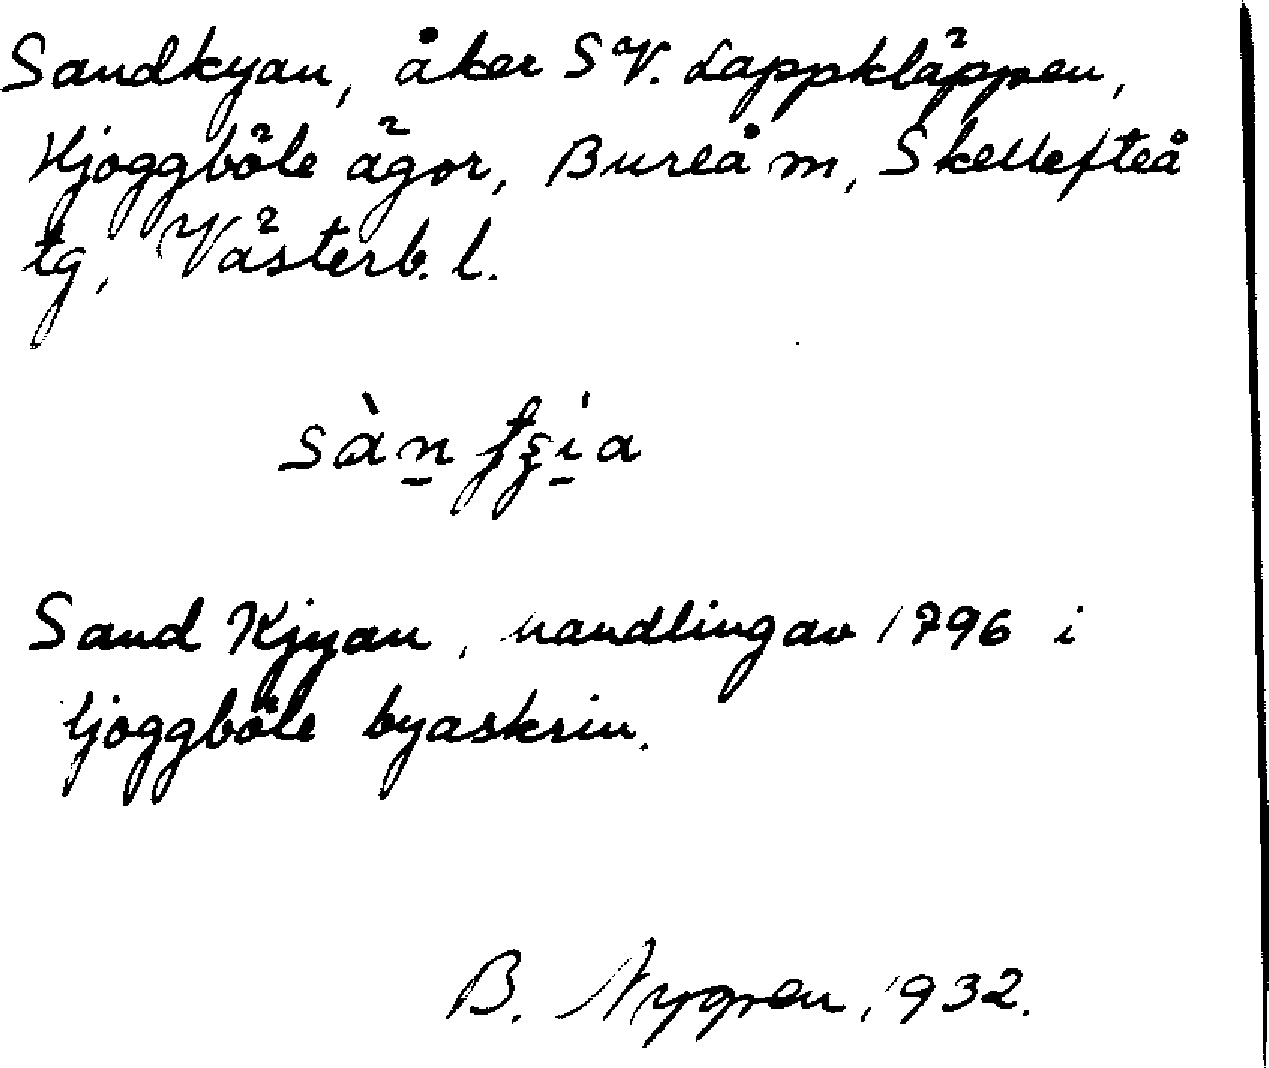 Sandkyan, åker SV. Lappkläppen,
Hjoggböle ägor, Bureå m, Skellefteå
tg, Västerb. l.
Sand Kjyan, handling av 1796 i
Hjoggböle byaskrin.
B. Nygren, 1932.